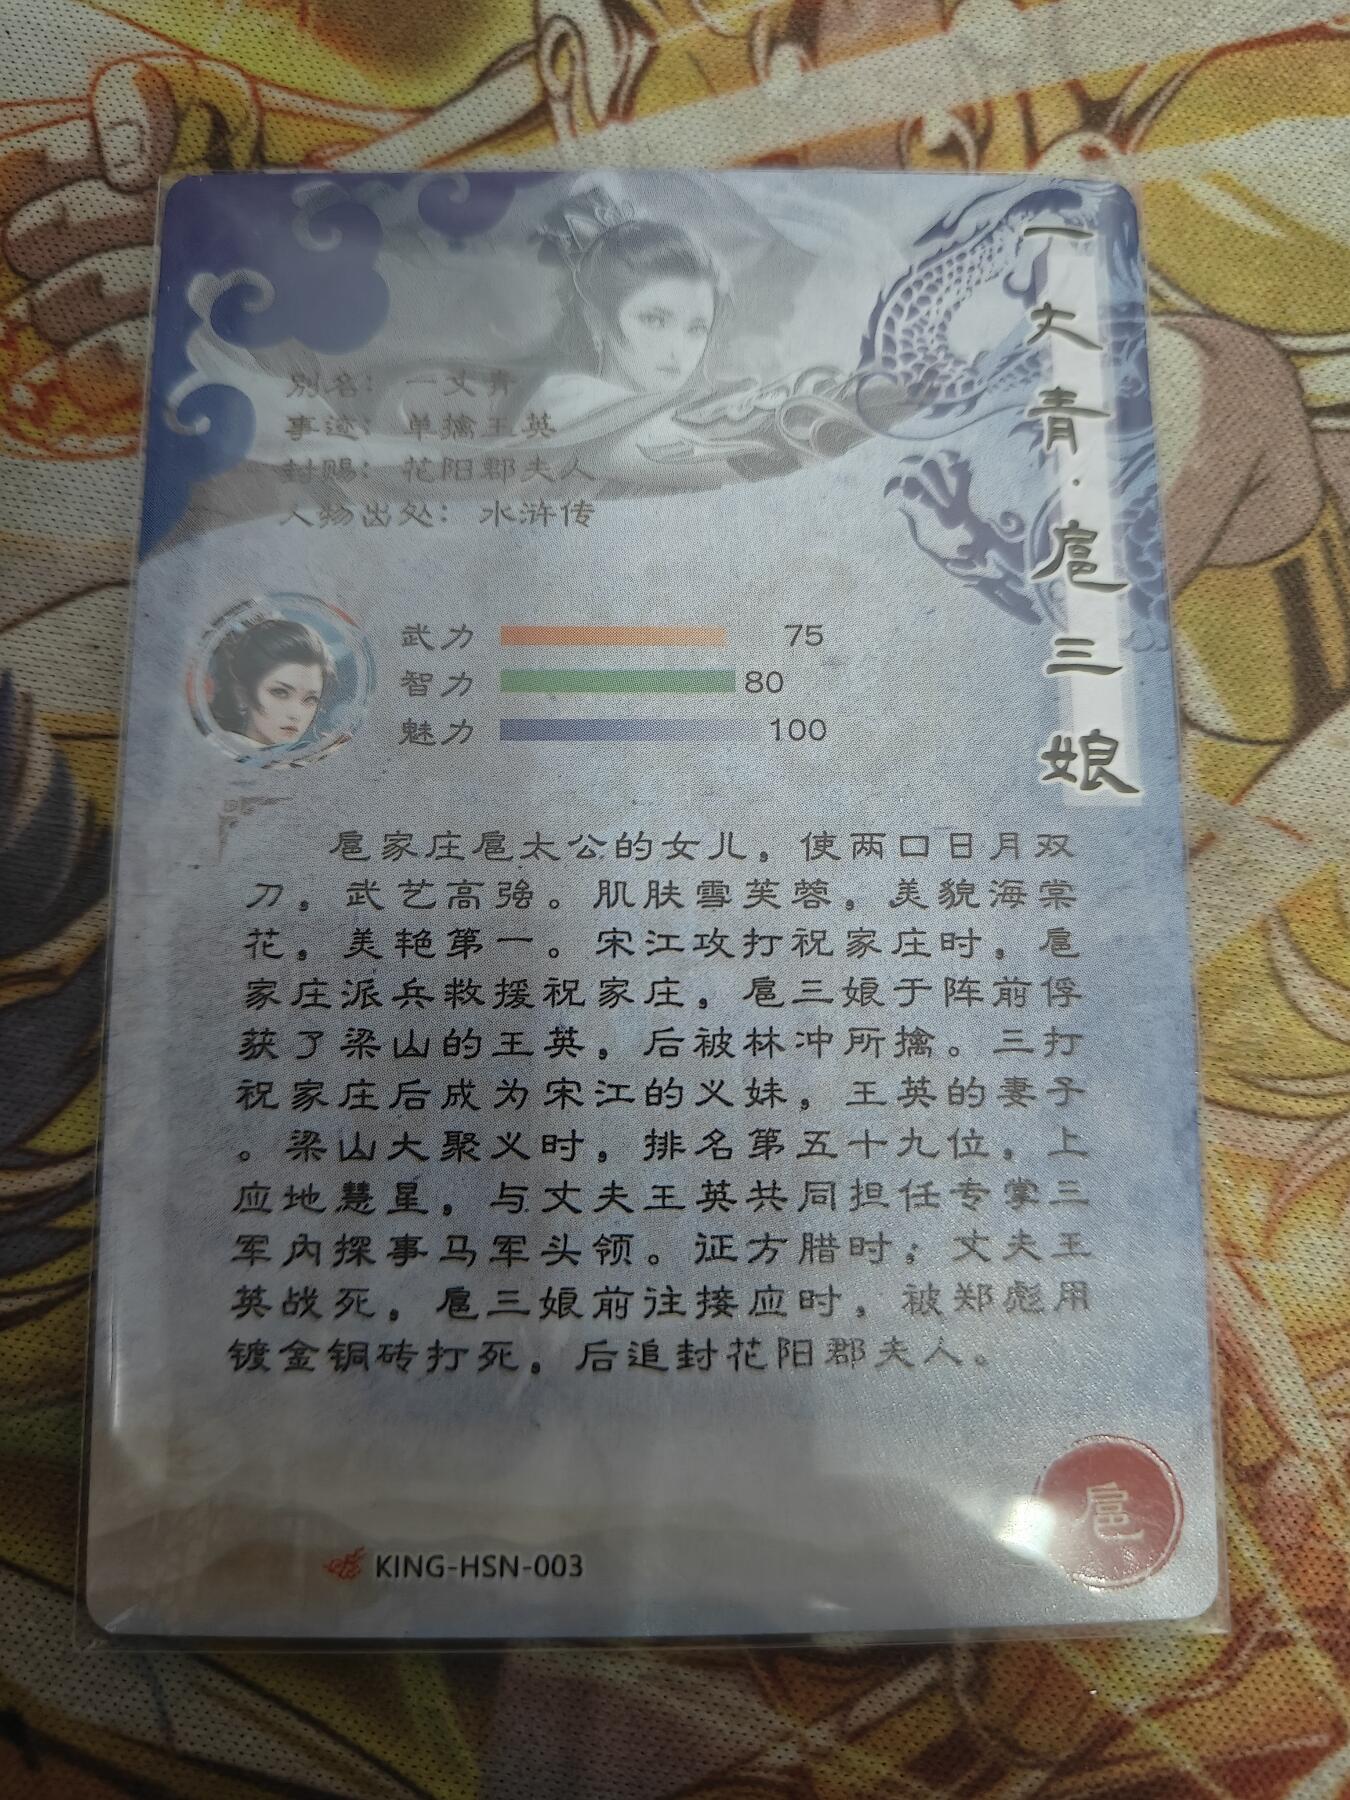 一丈青·扈三娘
别名：一丈青
事迹：单擒王英
封赐：花阳郡夫人
人物出处：水浒传
武力 75
智力 80
魅力 100
扈家庄扈太公的女儿，使两口日月双
刀，武艺高强。肌肤雪芙蓉，美貌海棠
花，美艳第一。宋江攻打祝家庄时，扈
家庄派兵救援祝家庄，扈三娘于阵前俘
获了梁山的王英，后被林冲所擒。三打
祝家庄后成为宋江的义妹，王英的妻子
。梁山大聚义时，排名第五十九位，上
应地慧星，与丈夫王英共同担任专掌三
军内探事马军头领。征方腊时，丈夫王
英战死，扈三娘前往接应时，被郑彪用
镀金铜砖打死，后追封花阳郡夫人。
扈
KING-HSN-003